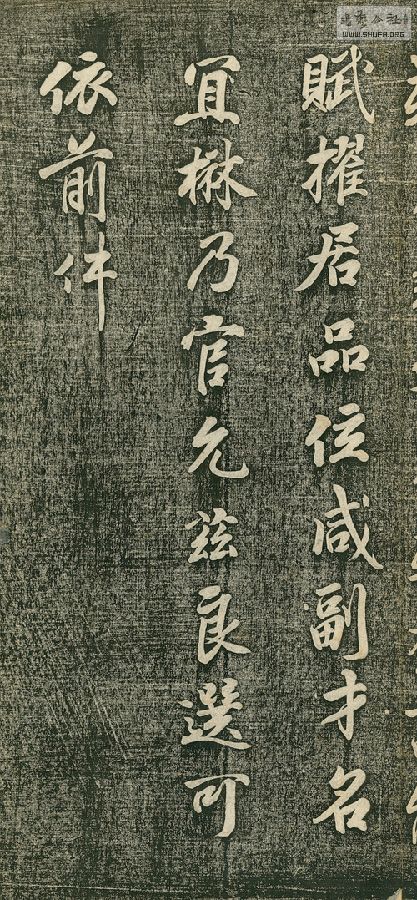 賦擢居品位咸副才名
宜楙乃官允茲良選可
依前件
書藝公社
WWW.SHUFA.ORG